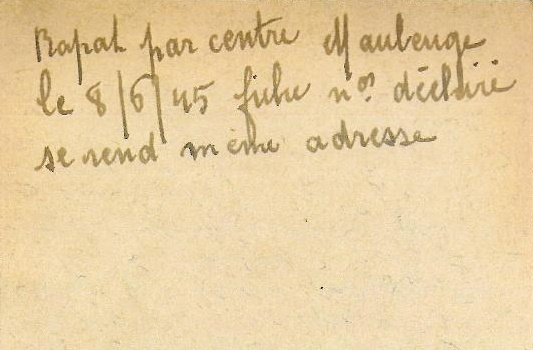 Rapat par centre Maubeuge
le 8/6/45 fiche nos déclaré
se rend même adresse